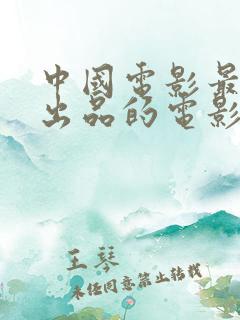 中國電影最
出品的電影
王琴
未经同意禁止转载